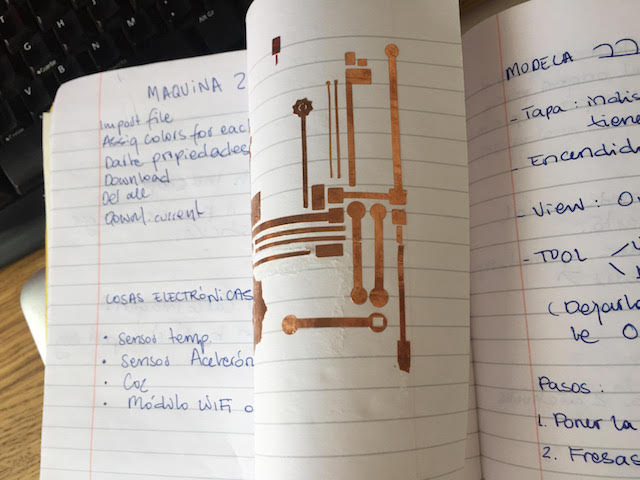 MAQUINA 2
Import file
Assig colors for each
Darle propiedades
Download
Del all
Downl. current
COSAS ELECTRÓNICAS
• Sensor temp.
• Sensor Acelerón
• Co2
• Módulo WiFi o
MODELA
- Tapa: indis
tiene
- Encendid
- View: O
- TOOL
(Dejarlo
le O
Pasos:
1. Poner la
2. Fresas
Alt Gr